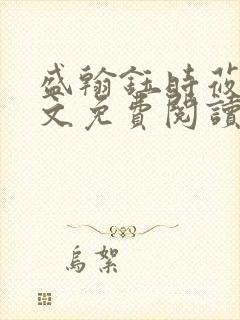 盛翰鈺時莜
文免費閱讀
烏絮